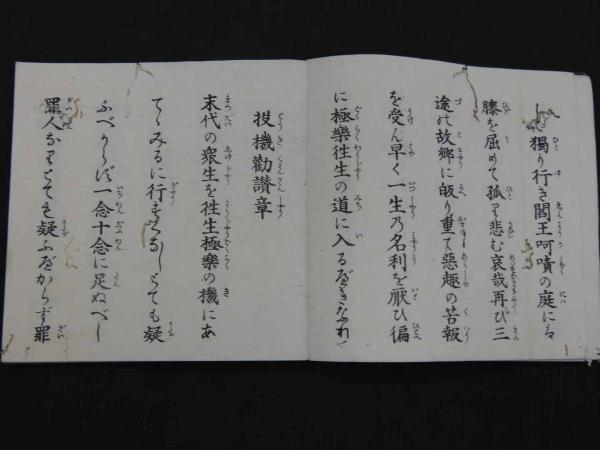 獨り行き閻王呵嘖の庭には
膝を屈めて孤り悲む哀哉再び三
途の故郷に皈り重て惡趣の苦報
を受ん早く一生乃名利を厭ひ徧
に極樂徃生の道に入るべきなれど
投機勸讃章
末代の衆生を徃生極樂の機にあ
てゝみるに行すくなしとても疑
ふべからず一念十念に足ぬべし
罪人なりとても疑ふべからず罪